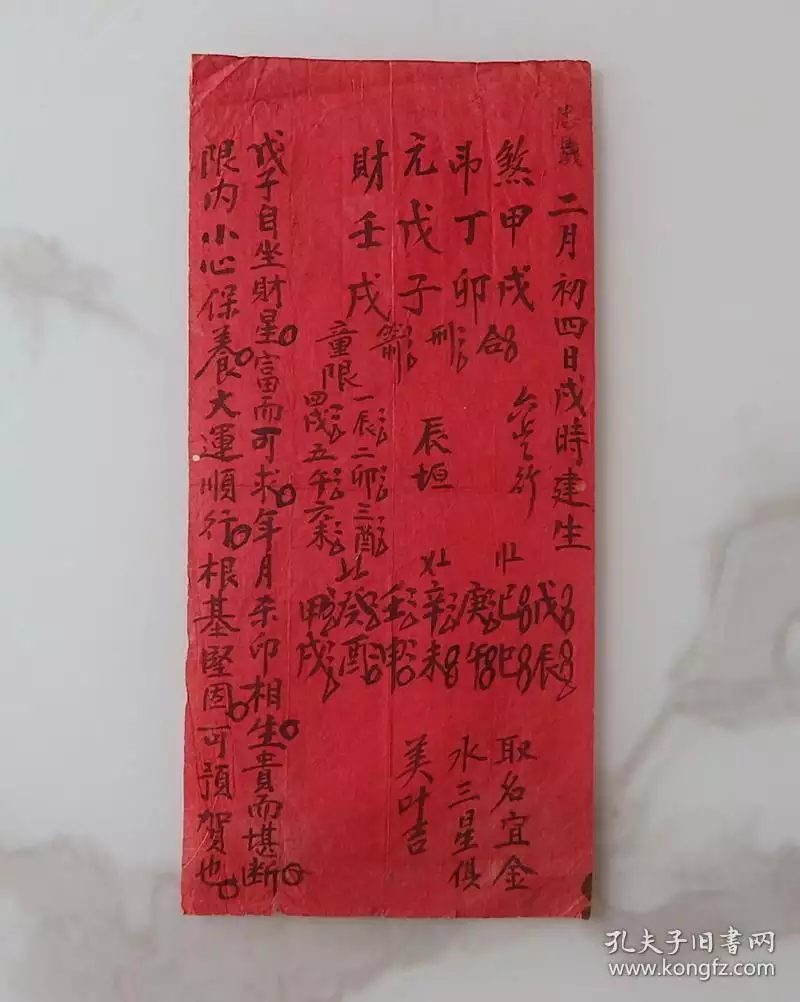 二月初四日戌時建生
煞甲戌合
卩丁卯刑
元戊子
財壬戌
六歲行
辰垣
童限
一辰二卯三酉
四戌五午六未
戊辰
己巳
庚午
辛未
壬申
癸酉
甲戌
取名宜金
水三星俱
美叶吉
戊子自坐財星富而可求年月杀印相生貴而堪断
限内小心保養大運順行根基堅固可預賀也
孔夫子旧書网
www.kongfz.com